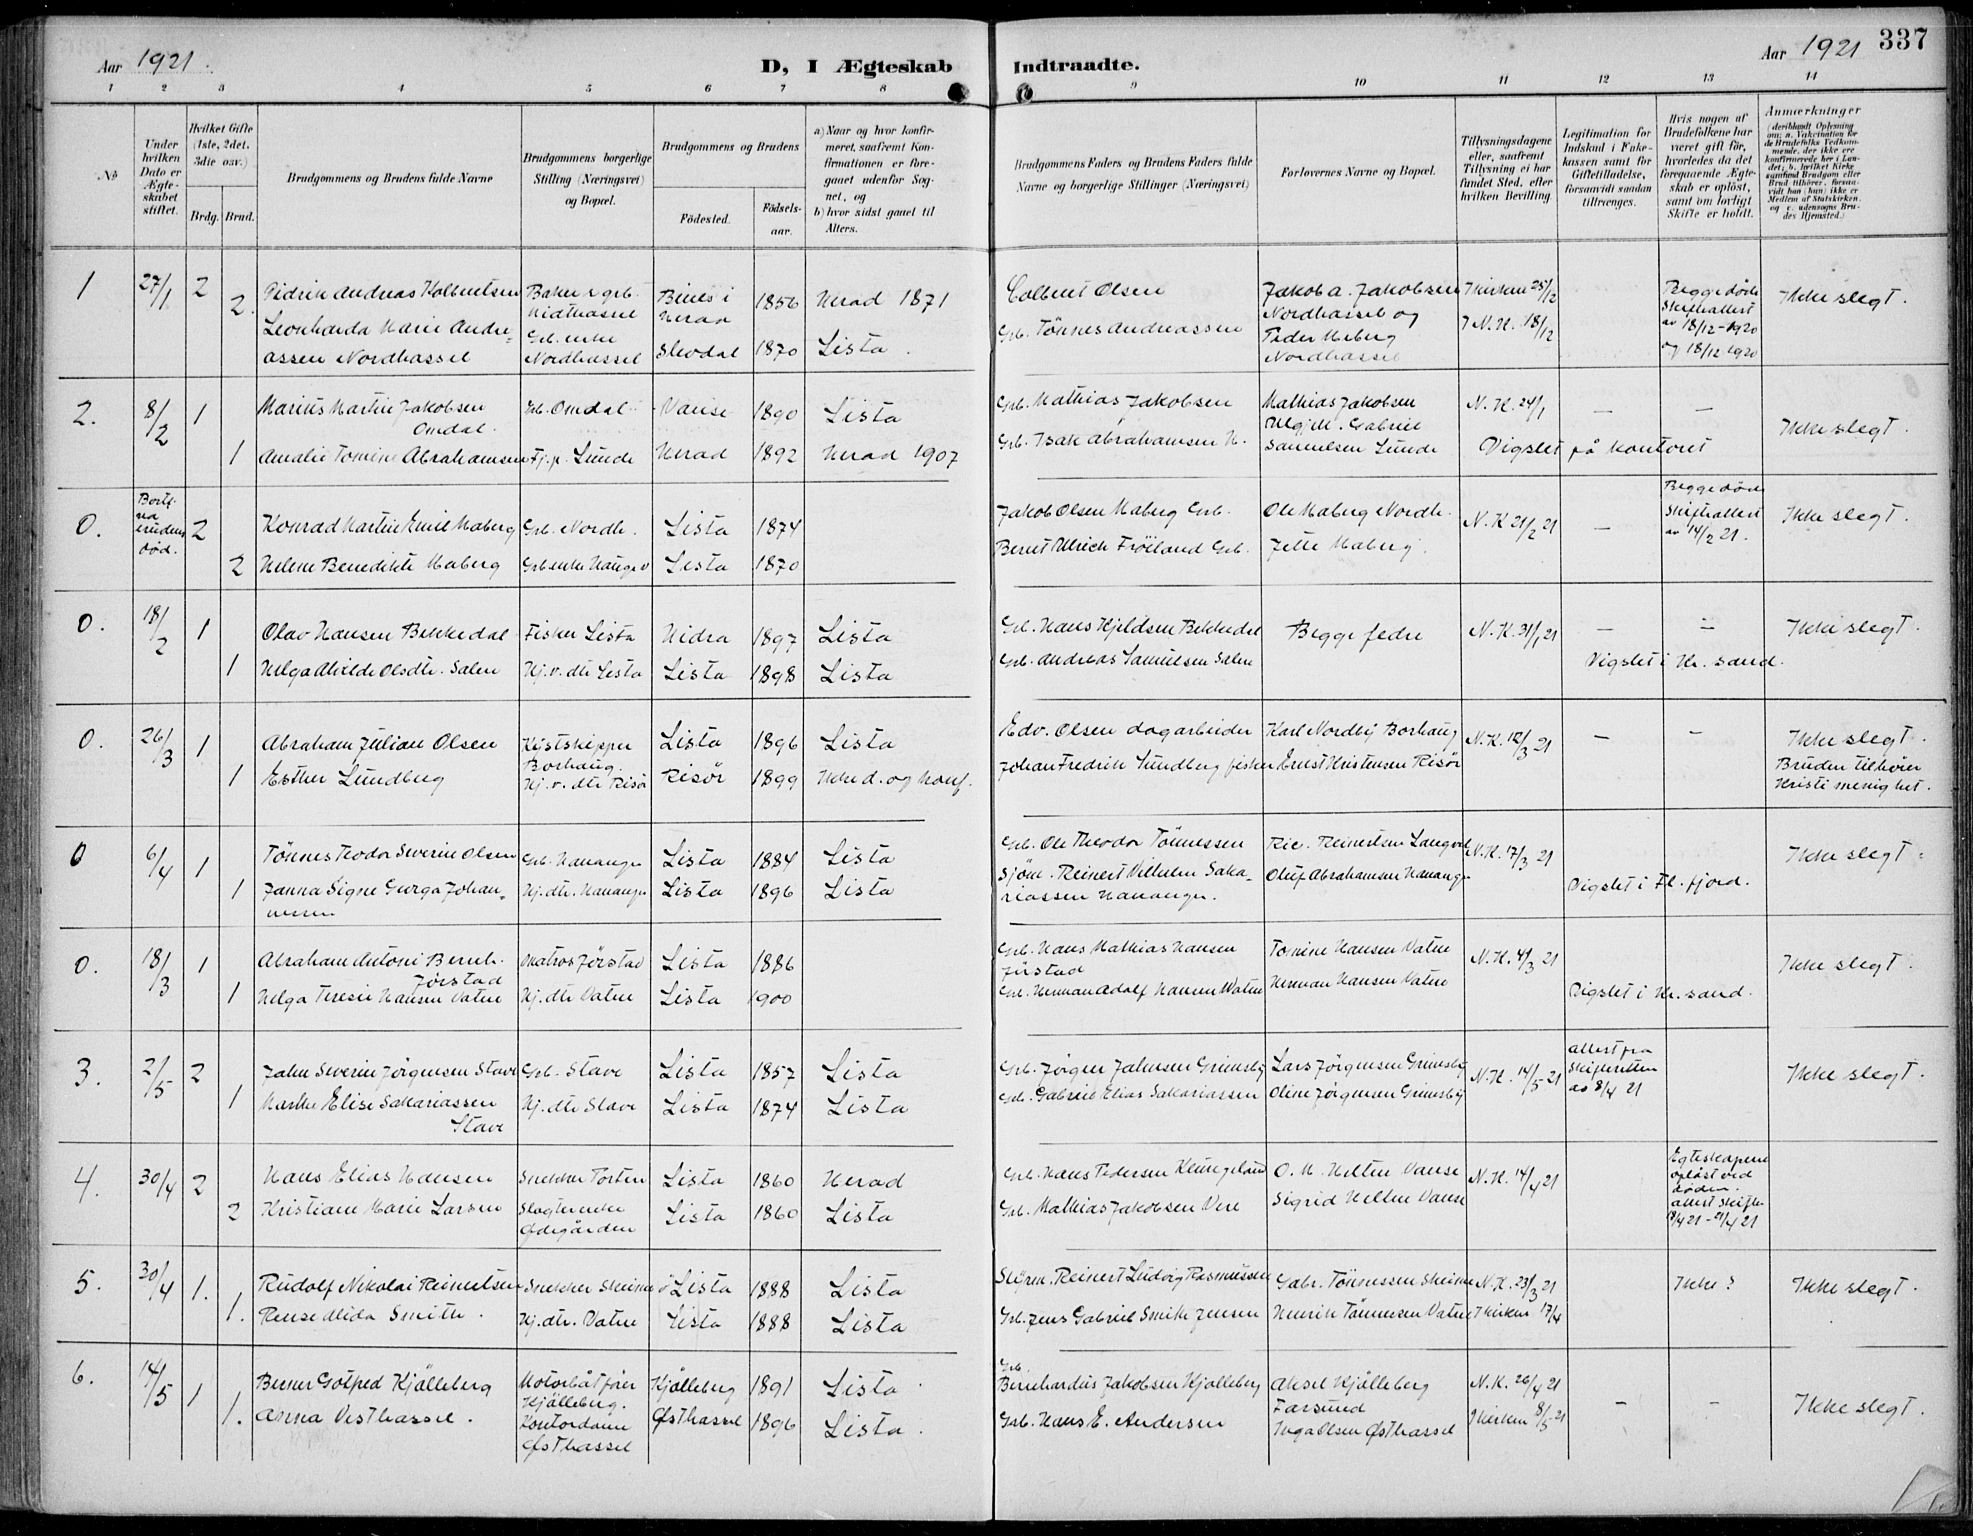 Aar 1921.
D, I Ægteskab Indtraadte.
Aar 1921 337
1 2 3 4 5 6 7 8 9 10 11 12 13 14
No
Under hvilken Dato er Ægteskabet stiftet.
Hvilket Gifte (1ste, 2det, 3die osv.)
Brdg. Brud.
Brudgommens og Brudens fulde Navne
Brudgommens borgerlige Stilling (Næringsvei) og Bopæl.
Brudgommens og Brudens
Födested. Födsels-aar.
a) Naar og hvor konfirmeret, saafremt Konfirmationen er foregaaet udenfor Sognet, og
b) hvor sidst gaaet til Alters.
Brudgommens Faders og Brudens Faders fulde Navne og borgerlige Stillinger (Næringsvei)
Forlovernes Navne og Bopæl.
Tillysningsdagene eller, saafremt Tillysning ei har fundet Sted, efter hvilken Bevilling.
Legitimation for Indskud i Enkekassen samt for Giftetilladelse, forsaavidt saadan tiltrænges.
Hvis nogen af Brudefolkene har været gift för, hvorledes da det foregaaende Ægteskab er oplöst, samt om lovligt Skifte er holdt.
Anmærkninger
(deriblandt Oplysning om: a. Vakcination for de Brudefolks Vedkommende, der ikke ere konfirmerede her i Landet; b. hvilket Kirkesamfund Brudgom eller Brud tilhörer, forsaavidt han (hun) ikke er Medlem af Statskirken, og c. udensogns Brudes Hjemsted.)
1 27/1 2 Didrik Andreas Kolbentsen Baker & grb. Midthassel Bines i Herad 1856 Herad 1871 Colbent Olsen Jakob A. Jakobsen Nordhassel og I kirken 25/12 Begge døde Skifteattest av 18/12-1920 og 18/12 1920 Ikke slegt.
2. Leonharda Marie Andreassen Nordhassel Grb. enke Nordhassel Skodal 1870 Lista. Grb. Tönnes Andreassen Peder Maberg Nordhassel I N.K. 18/12
2. 8/2 1 Marius Martin Jakobsen Omdal. Grb. Omdal Vanse 1890 Lista Grb. Mathias Jakobsen Mathias Jakobsen N. K. 24/1 — — Ikke slegt.
1 Amalie Tomine Abrahamsen Fj. p. Lunde Herad 1892 Herad 1907 Grb. Isak Abrahamsen H. Gabriel Samuelsen Lunde Vigslet på kontoret
0. Bortf. ved brudens død. 2 Konrad Martin Emil Maberg Grb. Nordh. Lista 1874 Jakob Olsen Maberg Grb. Ole Maberg Nordh. N. K 21/2 21 — Begge døde Skifteattest av 14/2 21. Ikke slegt.
2 Helene Benedikte Maberg Grb enke Hauge Lista 1870 Bernt Ulrich Fröiland Grb. Jette Maberg.
0. 18/2 1 Olav Hansen Bekkedal Fisker Lista Hidra 1897 Lista Grb. Hans Kjeldsen Bekkedal Begge fedre N. K. 31/1 21 — — Ikke slegt.
1 Helga Alvilde Olsdtr. Salen Hj. v. dtr Lista Lista 1898 Lista Grb. Andreas Samuelsen Salen Vigslet i Kr. sand.
0. 26/3 1 Abraham Julian Olsen Kystskipper Borhaug. Lista 1896 Lista Edv. Olsen dagarbeider Karl Nordby Borhaug N. K. 12/3 21 — — Ikke slegt.
1 Esther Lundberg Hj. v. dtr Risör Risör 1899 Ikke d. og konf. Johan Fredrik Lundberg fisker Ernst Kristensen Risör Bruden tilhörer Kristi menighet.
0 6/4 1 Tönnes Teodor Severin Olsen Grb. Nananger Lista 1884 Lista Grb. Ole Theodor Tönnessen Ric. Reinertsen Langvel N. K. 17/3 21 Ikke slegt.
1 Janna Signe Gurga Johannesen Hj. dtr. Nananger Lista 1896 Lista Sjöm. Reinert Vilhelm Sakariassen Nananger. Oluf Abrahamsen Nananger Vigslet i Fl. fjord.
0. 18/3 1 Abraham Antoni Bernh. Jörstad Matros Jörstad Lista 1886 Grb. Hans Mathias Hansen Jörstad Tomine Hansen Vatne N. K. 4/3 21 Ikke slegt.
1 Helga Teresie Hansen Vatne Hj. dtr Vatne Lista 1900 Grb. Herman Adolf Hansen Vatne Herman Hansen Vatne Vigslet i Kr. sand.
3. 2/5 2 Jahn Severin Jörgensen Stave Grb. Stave Lista 1857 Lista Grb. Jörgen Jahnsen Grimsby Lars Jörgensen Grimsby N. K. 14/5-21 Attest fra Skifteretten av 8/4 21 Ikke slegt.
1 Marthe Elise Sakariassen Stave Hj. dtr Stave Lista 1874 Lista Grb. Gabriel Elias Sakariassen Oline Jörgensen Grimsby
4. 30/4 2 Hans Elias Hansen Snekker Torsten Lista 1860 Herad Grb. Hans Pedersen Klungeland O. M. Velten Vanse N. K. 14/4 21 Egteskapene oplöst ved döden. Attest Skifter 19/4 21 - 21/4 21
2 Kristiane Marie Larsen Slagterenke Ødegården Lista 1860 Lista Grb. Mathias Jakobsen Vere Sigrid Velten Vanse
5. 30/4 1. Rudolf Nikolai Reinertsen Snekker Skeime Lista 1888 Lista Styrm. Reinert Ludvig Rasmussen Gabr. Tönnessen Skeime N. K. 23/3 21 Ikke? Ikke slegt.
1. Rense Alida Smith. Hj. dtr. Vatne Lista 1888 Lista Grb. Jens Gabriel Smith Jensen Henrik Tönnesen Vatne I kirken 17/4
6. 14/5 1 Berner Gotfred Kjölleberg Motorbåtförer Kjölleberg. Kjölleberg 1891 Lista Grb. Bernhardus Jakobsen Kjölleberg Aksel Kjölleberg Farsund N. K. 26/4 21 — — Ikke slegt.
1. Anna Vesthassel. Kontordame Østhassel Østhassel 1896 Lista. Grb. Hans E. Andersen Inga Olsen Østhassel I kirken 8/5-21